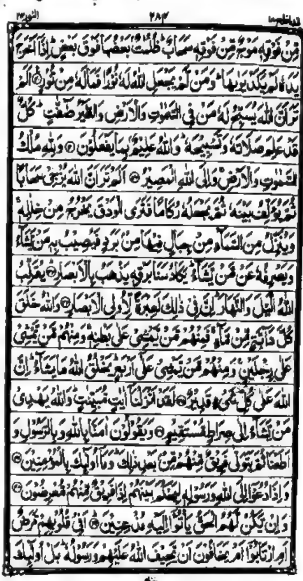 قد افلح ١٨ ٢٨٤ النور ٢٤
مِّنْ فَوْقِهٖ مَوْجٌ مِّنْ فَوْقِهٖ سَحَابٌ ؕ ظُلُمٰتٌۢ بَعْضُهَا فَوْقَ بَعْضٍ ؕ اِذَاۤ اَخْرَجَ
يَدَهٗ لَمْ يَكَدْ يَرٰىهَا ؕ وَمَنْ لَّمْ يَجْعَلِ اللّٰهُ لَهٗ نُوْرًا فَمَا لَهٗ مِنْ نُّوْرٍ ۟ اَلَمْ
تَرَ اَنَّ اللّٰهَ يُسَبِّحُ لَهٗ مَنْ فِي السَّمٰوٰتِ وَالْاَرْضِ وَالطَّيْرُ صٰٓفّٰتٍ ؕ كُلٌّ
قَدْ عَلِمَ صَلَاتَهٗ وَتَسْبِيْحَهٗ ؕ وَاللّٰهُ عَلِيْمٌۢ بِمَا يَفْعَلُوْنَ ۟ وَلِلّٰهِ مُلْكُ
السَّمٰوٰتِ وَالْاَرْضِ ۚ وَاِلَى اللّٰهِ الْمَصِيْرُ ۟ اَلَمْ تَرَ اَنَّ اللّٰهَ يُزْجِيْ سَحَابًا
ثُمَّ يُؤَلِّفُ بَيْنَهٗ ثُمَّ يَجْعَلُهٗ رُكَامًا فَتَرَى الْوَدْقَ يَخْرُجُ مِنْ خِلٰلِهٖ ۚ
وَيُنَزِّلُ مِنَ السَّمَآءِ مِنْ جِبَالٍ فِيْهَا مِنْۢ بَرَدٍ فَيُصِيْبُ بِهٖ مَنْ يَّشَآءُ
وَيَصْرِفُهٗ عَنْ مَّنْ يَّشَآءُ ؕ يَكَادُ سَنَا بَرْقِهٖ يَذْهَبُ بِالْاَبْصَارِ ۟ يُقَلِّبُ
اللّٰهُ الَّيْلَ وَالنَّهَارَ ؕ اِنَّ فِيْ ذٰلِكَ لَعِبْرَةً لِّاُولِي الْاَبْصَارِ ۟ وَاللّٰهُ خَلَقَ
كُلَّ دَآبَّةٍ مِّنْ مَّآءٍ ۚ فَمِنْهُمْ مَّنْ يَّمْشِيْ عَلٰى بَطْنِهٖ ۚ وَمِنْهُمْ مَّنْ يَّمْشِيْ
عَلٰى رِجْلَيْنِ ۚ وَمِنْهُمْ مَّنْ يَّمْشِيْ عَلٰۤى اَرْبَعٍ ؕ يَخْلُقُ اللّٰهُ مَا يَشَآءُ ؕ اِنَّ
اللّٰهَ عَلٰى كُلِّ شَيْءٍ قَدِيْرٌ ۟ لَقَدْ اَنْزَلْنَاۤ اٰيٰتٍ مُّبَيِّنٰتٍ ؕ وَاللّٰهُ يَهْدِيْ
مَنْ يَّشَآءُ اِلٰى صِرَاطٍ مُّسْتَقِيْمٍ ۟ وَيَقُوْلُوْنَ اٰمَنَّا بِاللّٰهِ وَبِالرَّسُوْلِ وَ
اَطَعْنَا ثُمَّ يَتَوَلّٰى فَرِيْقٌ مِّنْهُمْ مِّنْۢ بَعْدِ ذٰلِكَ ؕ وَمَاۤ اُولٰٓئِكَ بِالْمُؤْمِنِيْنَ ۟
وَاِذَا دُعُوْۤا اِلَى اللّٰهِ وَرَسُوْلِهٖ لِيَحْكُمَ بَيْنَهُمْ اِذَا فَرِيْقٌ مِّنْهُمْ مُّعْرِضُوْنَ ۟
وَاِنْ يَّكُنْ لَّهُمُ الْحَقُّ يَاْتُوْۤا اِلَيْهِ مُذْعِنِيْنَ ۟ اَفِيْ قُلُوْبِهِمْ مَّرَضٌ
اَمِ ارْتَابُوْۤا اَمْ يَخَافُوْنَ اَنْ يَّحِيْفَ اللّٰهُ عَلَيْهِمْ وَرَسُوْلُهٗ ؕ بَلْ اُولٰٓئِكَ